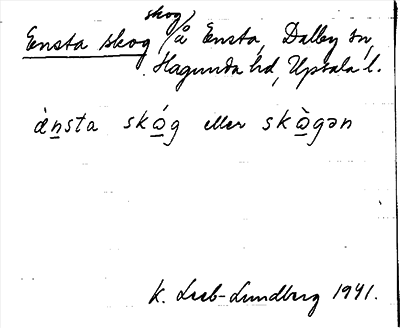 Ensta skog, skog å Ensta, Dalby sn,
Hagunda hd, Upsala l.
ànsta skóg eller skògən
K. Leeb-Lundberg 1941.